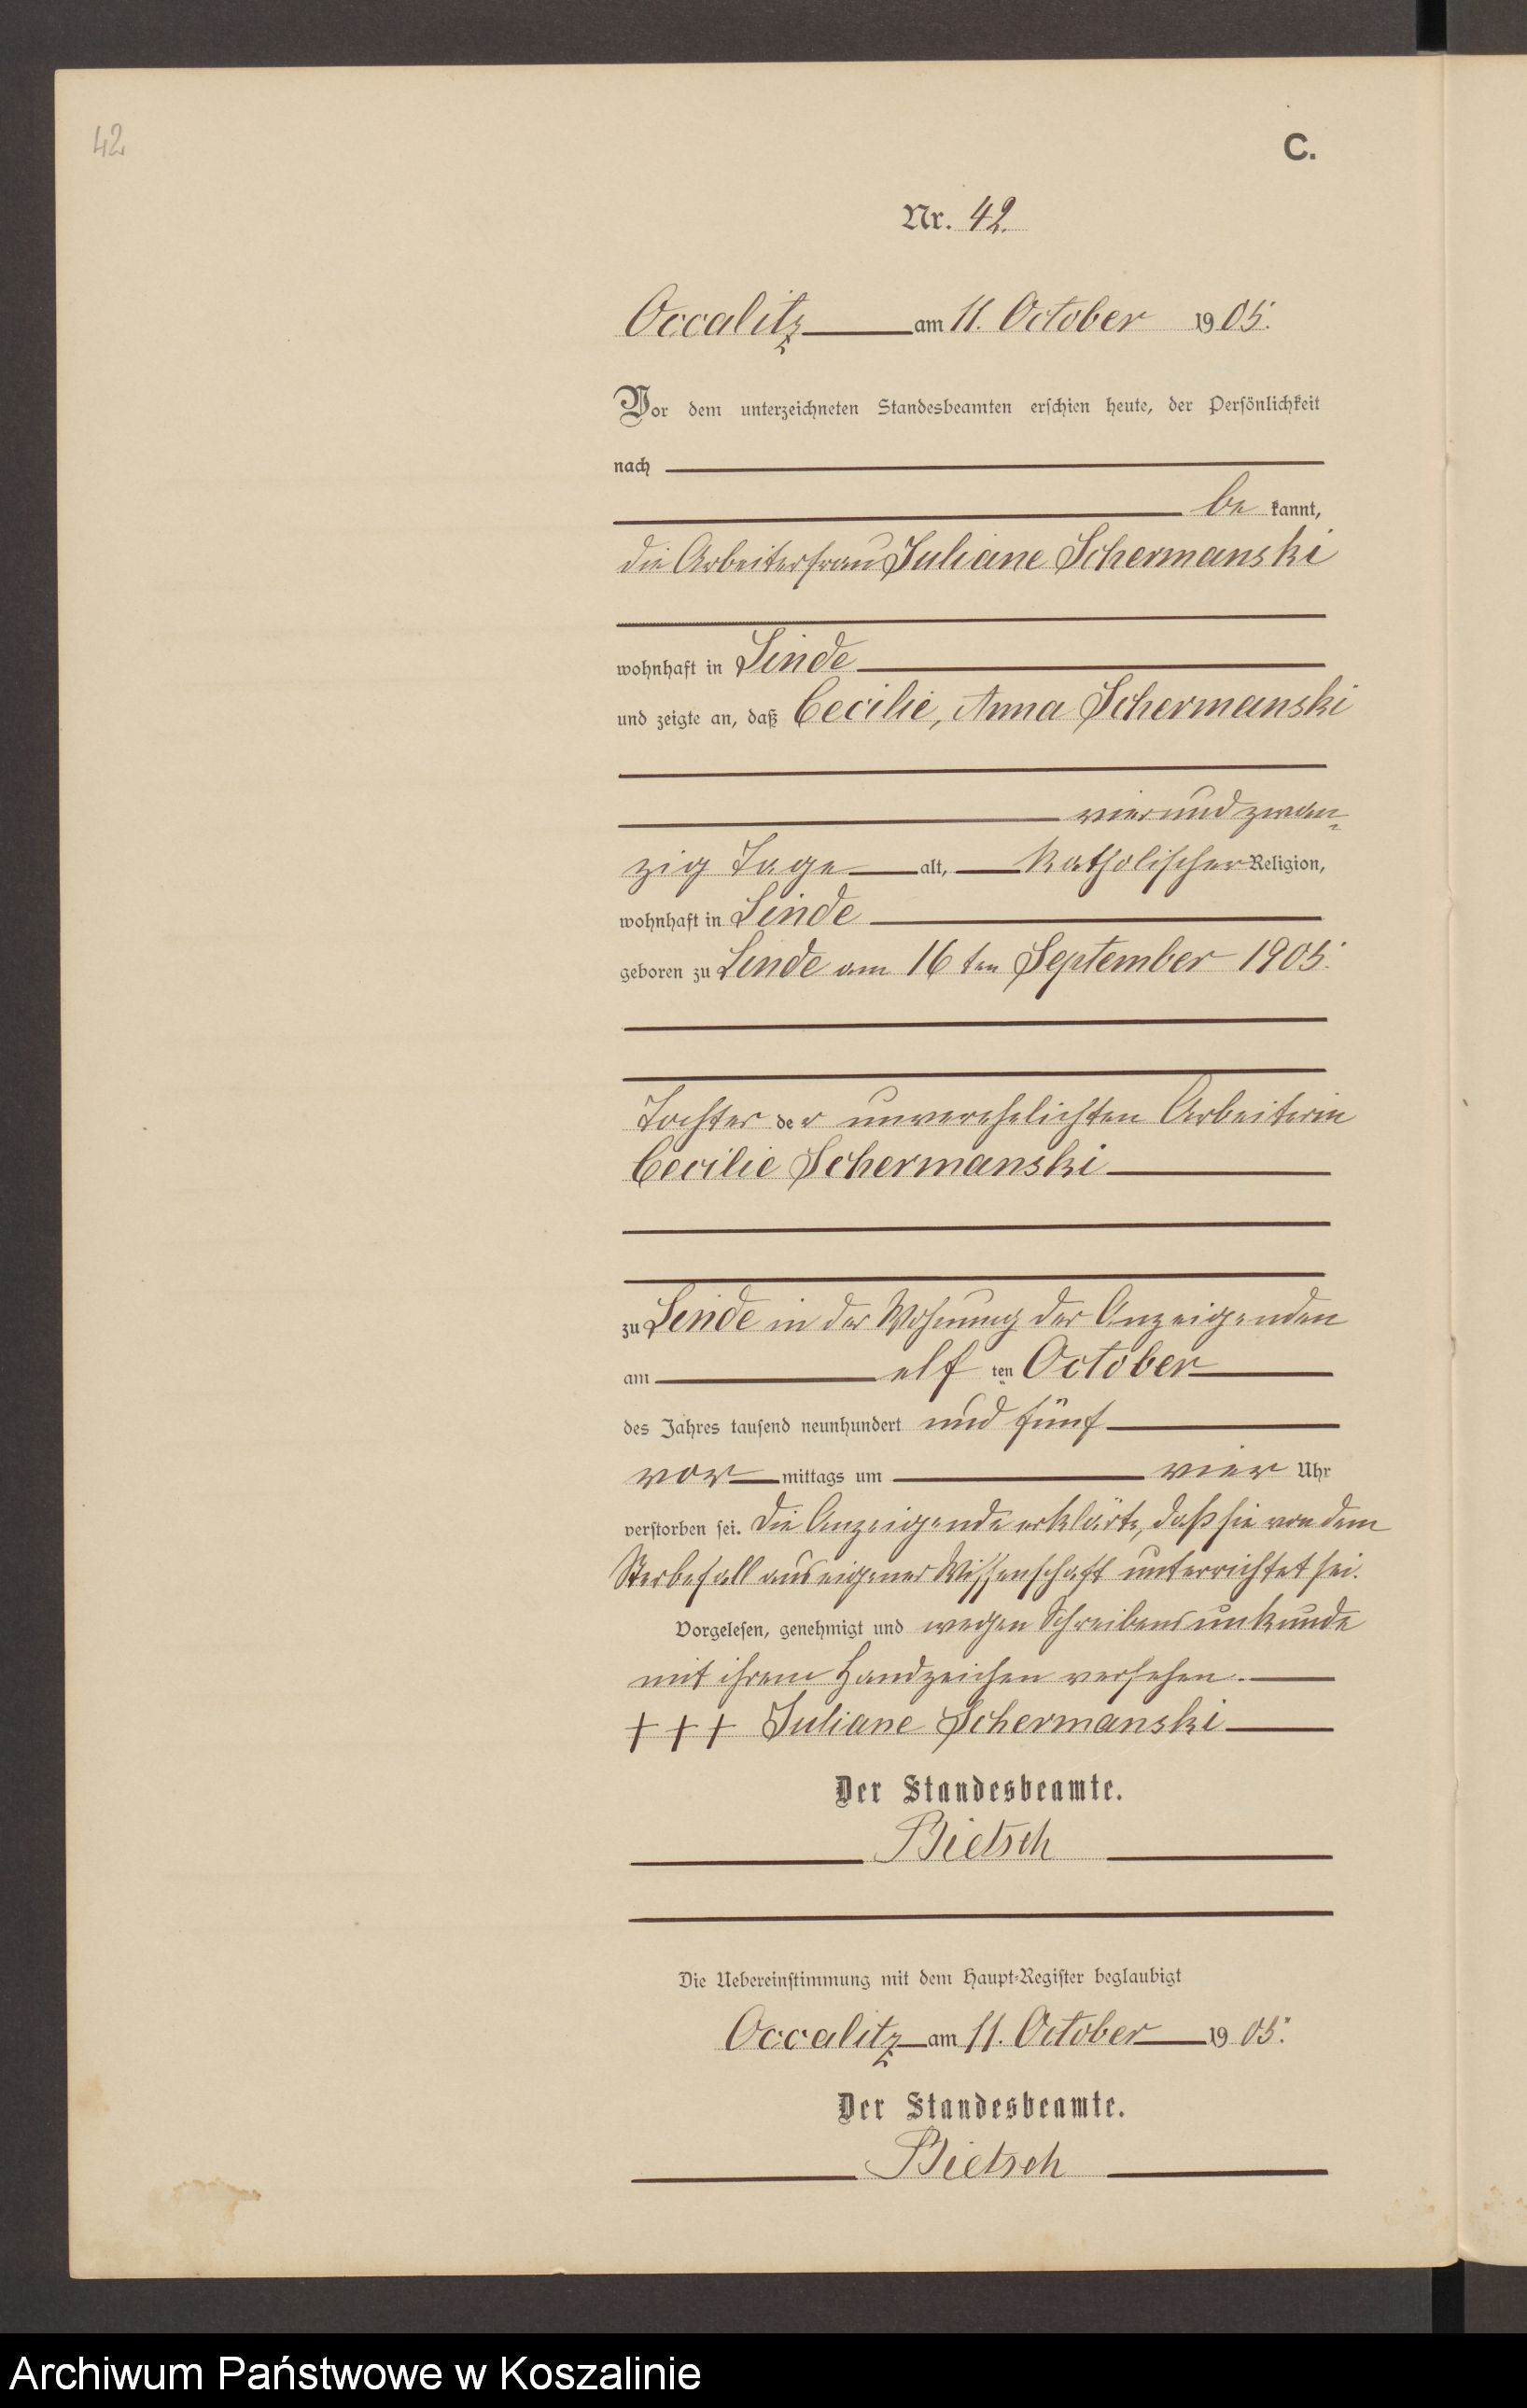 42
C.
Nr. 42.
Occalitz am 11. October 1905.
Vor dem unterzeichneten Standesbeamten erschien heute, der Persönlichkeit
nach
be kannt,
die Arbeiterfrau Juliane Schermanski
wohnhaft in Linde
und zeigte an, daß Cecilie, Anna Schermanski
vierundzwan-
zig Tage alt, katholischer Religion,
wohnhaft in Linde
geboren zu Linde am 16ten September 1905.
Tochter der unverehelichten Arbeiterin
Cecilie Schermanski
zu Linde in der Wohnung der Anzeigenden
am elf ten October
des Jahres tausend neunhundert und fünf
vor mittags um vier Uhr
verstorben sei. Die Anzeigende erklärte, daß sie von dem
Sterbefall aus eigener Wissenschaft unterrichtet sei.
Vorgelesen, genehmigt und wegen Schreibensunkunde
mit ihrem Handzeichen versehen.
+ + + Juliane Schermanski
Der Standesbeamte.
Bietsch
Die Uebereinstimmung mit dem Haupt-Register beglaubigt
Occalitz am 11. October 1905.
Der Standesbeamte.
Bietsch
Archiwum Państwowe w Koszalinie